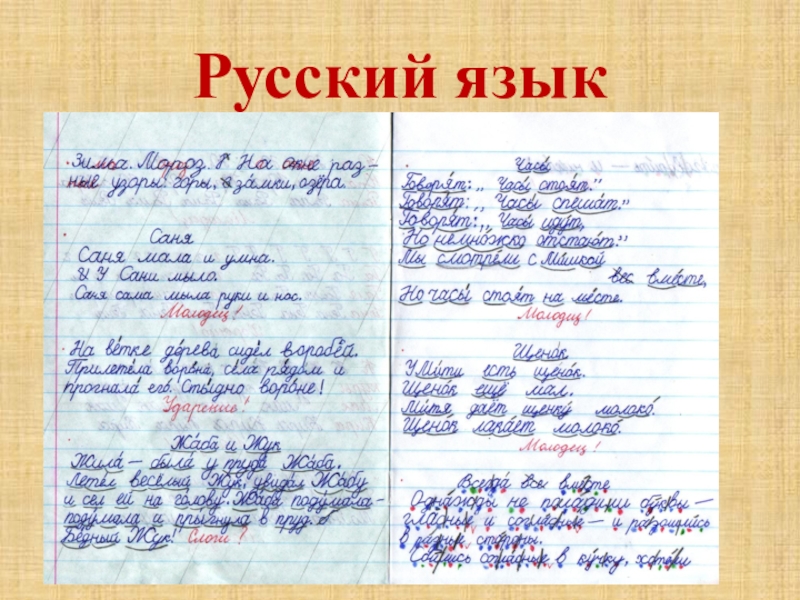 Русский язык
Зима. Мороз. На окне раз-
ные узоры: горы, замки, озёра.
Саня
Саня мала и умна.
У Сани мыло.
Саня сама мыла руки и нос.
Молодец!
На ветке дерева сидел воробей.
Прилетела ворона, села рядом и
прогнала его. Стыдно вороне!
Ударение!
Жаба и Жук
Жила – была у пруда Жаба.
Летел весёлый Жук, увидал Жабу
и сел ей на голову. Жаба подумала-
подумала и прыгнула в пруд.
Бедный Жук!
Слоги?
Часы
Говорят: „Часы стоят.”
Говорят: „Часы спешат.”
Говорят: „Часы идут,
Но немножко отстают.”
Мы смотрели с Мишкой
вместе,
Но часы стоят на месте.
Молодец!
Щенок
У Мити есть щенок.
Щенок ещё мал.
Митя даёт щенку молоко.
Щенок лакает молоко.
Молодец!
Всегда все вместе
Однажды не поладили буквы –
гласные и согласные – и разошлись
в разные стороны.
Сбились согласные в кучку, хотели